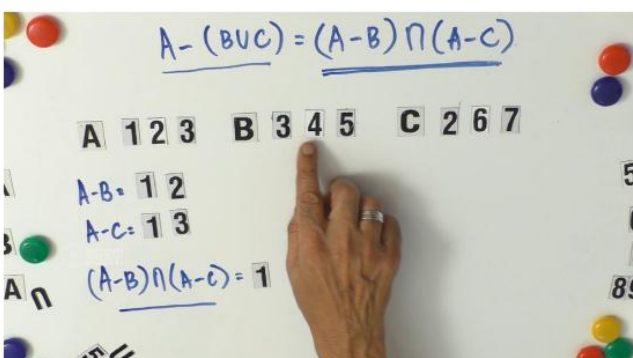 A-(BUC) = (A-B)∩(A-C)
A 1 2 3 B 3 4 5 C 2 6 7
A-B= 1 2
A-C= 1 3
(A-B)∩(A-C)= 1
5
B
A
∩
89
5
U